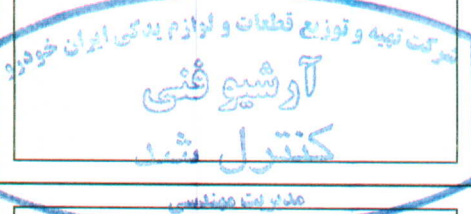 شرکت تهیه و توزیع قطعات و لوازم یدکی ایران خودرو
آرشیو فنی
کنترل شد
مدیریت مهندسی